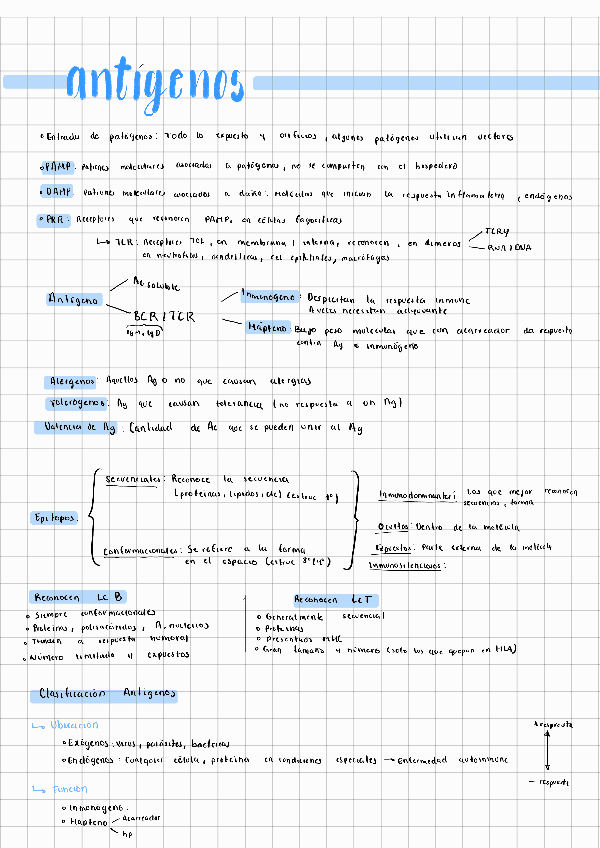 antígenos
• Entrada de patógenos: Todo lo expuesto y orificios, algunos patógenos utilizan vectores
• PAMP: Patrones moleculares asociados a patógenos, no se comparten con el hospedero
• DAMP: Patrones moleculares asociados a daño: Moléculas que inician la respuesta inflamatoria, endógenos
• PRR: Receptores que reconocen PAMP, en células fagocíticas
↳ TLR: Receptores TOLL, en membrana / interna, reconocen, en dímeros
TLR4
RNA / DNA
en neutrófilos, dendríticas, cel epiteliales, macrófagos
Antígeno
Ac soluble
BCR / TCR
IgM, IgD
Inmunógeno: Despiertan la respuesta inmune
A veces necesitan adyuvante
Hapteno: Bajo peso molecular que con acarreador da respuesta
contra Ag e inmunógeno
Alérgenos: Aquellos Ag o no que causan alergias
Tolerógenos: Ag que causan tolerancia (no respuesta a un Ag)
Valencia de Ag: Cantidad de Ac que se pueden unir al Ag
Epítopos:
Secuenciales: Reconoce la secuencia
(proteínas, lípidos, etc) (estruc 1°)
Conformacionales: Se refiere a la forma
en el espacio (estruc 3° / 4°)
Inmunodominantes: Los que mejor reconocen
secuencias, forma
Ocultos: Dentro de la molécula
Expuestos: Parte externa de la molécula
Inmunosilenciosos:
Reconocen LcB
• Siempre conformacionales
• Proteínas, polisacáridos, A. nucleicos
• Tienden a respuesta humoral
• Número limitado y expuestos
Reconocen LcT
• Generalmente secuencial
• Proteínas
• Presentados MHC
• Gran tamaño y número (solo los que quepan en HLA)
Clasificación Antígenos
↳ Ubicación
• Exógenos: virus, parásitos, bacterias
• Endógenos: Cualquier célula, proteína en condiciones especiales → Enfermedad autoinmune
+ respuesta
- respuesta
↳ Función
• Inmunógeno:
• Hapteno
Acarreador
hp